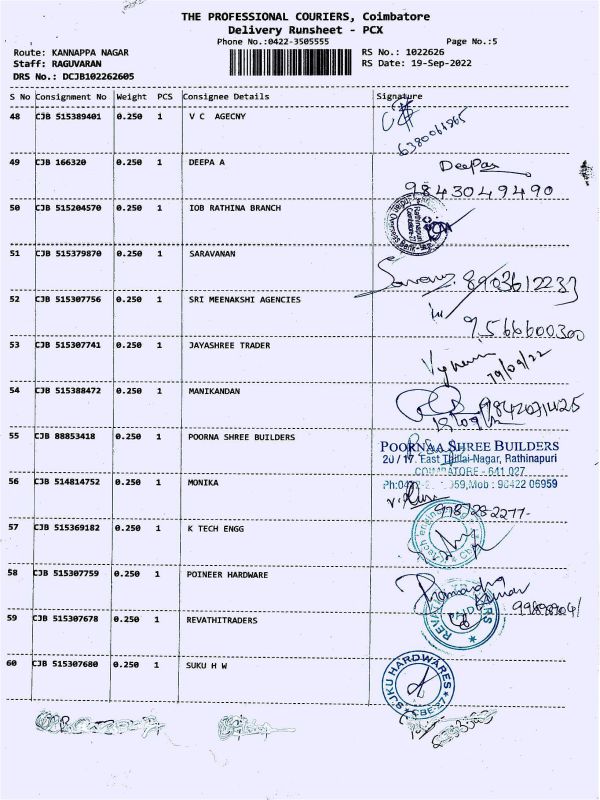 THE PROFESSIONAL COURIERS, Coimbatore
Delivery Runsheet - PCX
Phone No.:0422-3505555 Page No.:5
Route: KANNAPPA NAGAR RS No.: 1022626
Staff: RAGUVARAN RS Date: 19-Sep-2022
DRS No.: DCJB102262605
S No Consignment No Weight PCS Consignee Details Signature
48 CJB 515389401 0.250 1 V C AGECNY
49 CJB 166320 0.250 1 DEEPA A Deepa
9843049490
50 CJB 515204570 0.250 1 IOB RATHINA BRANCH
51 CJB 515379870 0.250 1 SARAVANAN
8903612233
52 CJB 515307756 0.250 1 SRI MEENAKSHI AGENCIES
9566600300
53 CJB 515307741 0.250 1 JAYASHREE TRADER
19/09/22
54 CJB 515388472 0.250 1 MANIKANDAN
55 CJB 88853418 0.250 1 POORNA SHREE BUILDERS POORNAA SHREE BUILDERS
20 / 17, East Thillai-Nagar, Rathinapuri
COIMBATORE - 641 027
56 CJB 514814752 0.250 1 MONIKA Mob : 98422 06959
57 CJB 515369182 0.250 1 K TECH ENGG
58 CJB 515307759 0.250 1 POINEER HARDWARE
59 CJB 515307678 0.250 1 REVATHITRADERS PAID
60 CJB 515307680 0.250 1 SUKU H W SUKU HARDWARES
CBE-27